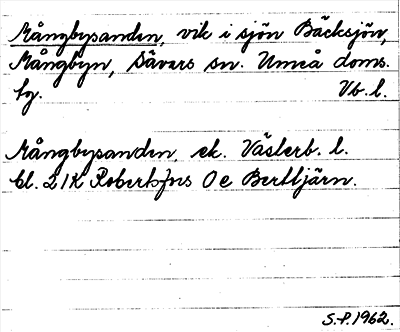 Mångbysanden, vik i sjön Bäcksjön,
Mångbyn, Sävars sn. Umeå doms.
hg. Vb. l.
Mångbysanden, ek. Västerb. l.
bl. 21K Robertsfors 0 e Berttjärn.
S.P. 1962.